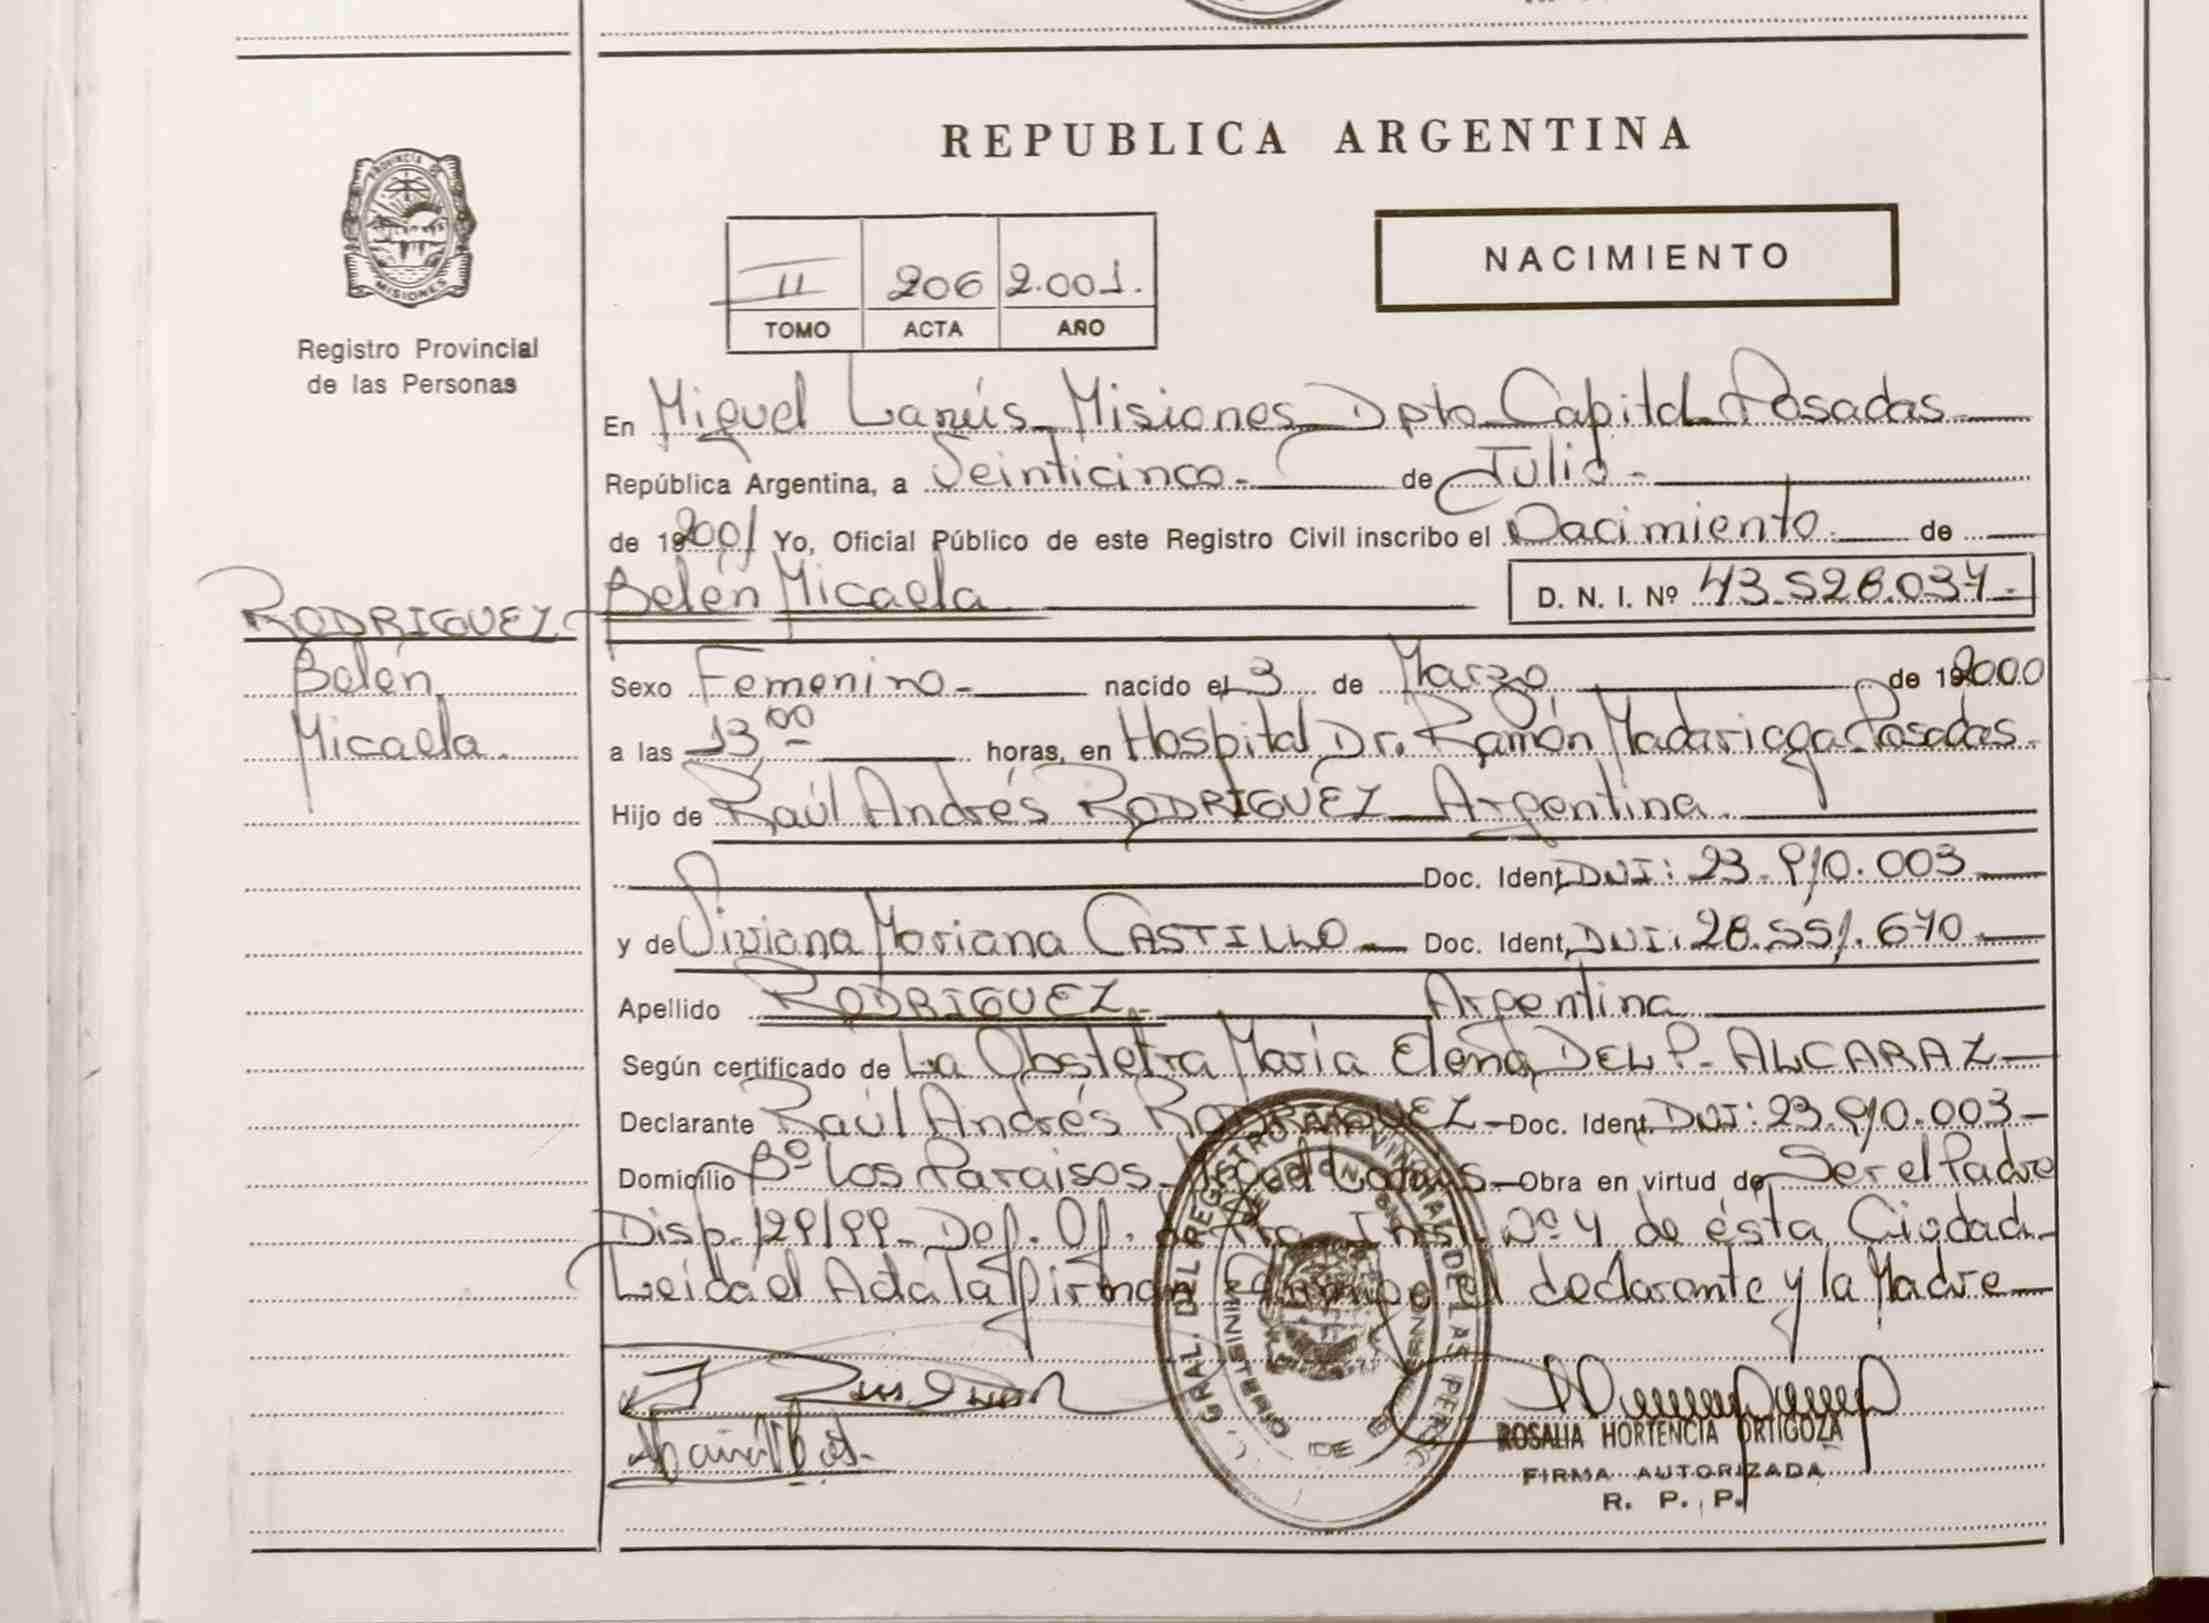 REPUBLICA ARGENTINA
PROVINCIA DE
MISIONES
Registro Provincial
de las Personas
NACIMIENTO
II 206 2.001.
TOMO ACTA AÑO
En Miguel Lanús Misiones Dpto Capital Posadas
República Argentina, a Veinticinco de Julio
de 19 2001 Yo, Oficial Público de este Registro Civil inscribo el Nacimiento de
Belén Micaela D. N. I. Nº 43.528.034
RODRIGUEZ
Belén
Micaela.
Sexo Femenino nacido el 3 de Marzo de 19 2000
a las 13 00 horas, en Hospital Dr. Ramón Madariaga Posadas
Hijo de Raúl Andrés RODRIGUEZ Argentina
Doc. Ident. DNI: 23.910.003
y de Viviana Mariana CASTILLO Doc. Ident. DNI: 28.551.670
Apellido RODRIGUEZ Argentina
Según certificado de La Obstetra María Elena DEL P. ALCARAZ
Declarante Raúl Andrés RODRIGUEZ Doc. Ident. DNI: 23.910.003
Domicilio Bº Los Paraisos Miguel Lanús Obra en virtud de Ser el Padre
Disp. 129/99 Def. Of. de Inst. Nº 4 de ésta Ciudad
Leida el Acta la firman el declarante y la Madre
GRAL. DEL REGISTRO PROVINCIAL DE LAS PERS
MINISTERIO DE
ROSALIA HORTENCIA ORTIGOZA
FIRMA AUTORIZADA
R. P. P.